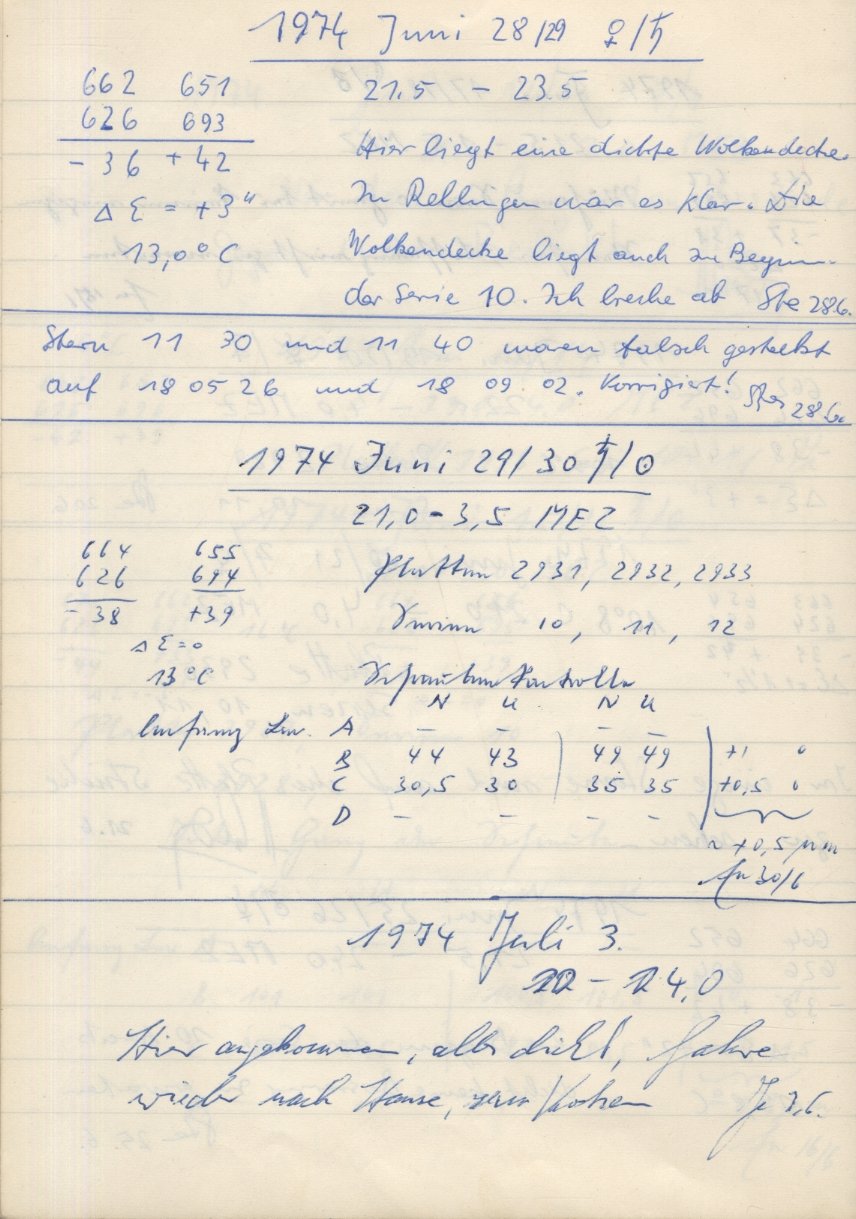 1974 Juni 28/29 ♀/♄
662 651 21.5 – 23.5
626 693
-36 +42 Hier liegt eine dichte Wolkendecke.
Δ Σ = +3" In Rellingen war es klar. Die
13,0° C Wolkendecke liegt auch zu Beginn
der Serie 10. Ich breche ab Ste 28.6.
Stern 11 30 und 11 40 waren falsch gestellt
auf 18 05 26 und 18 09 02. Korrigiert! 28.6.
1974 Juni 29/30 ♄/☉
21,0 – 3,5 MEZ
664 655 Platten 2931, 2932, 2933
626 694
-38 +39 Serien 10, 11, 12
Δ Σ = 0
13°C Separatenkontrolle
N U N U
Anfang A – – – –
B 44 43 49 49 +1 0
C 30,5 30 35 35 +0,5 0
D – – – –
~ +0,5 μm
30/6
1974 Juli 3.
22 – 24,0
Hier angekommen, alles dicht, fahre
wieder nach Hause, zum Kotzen